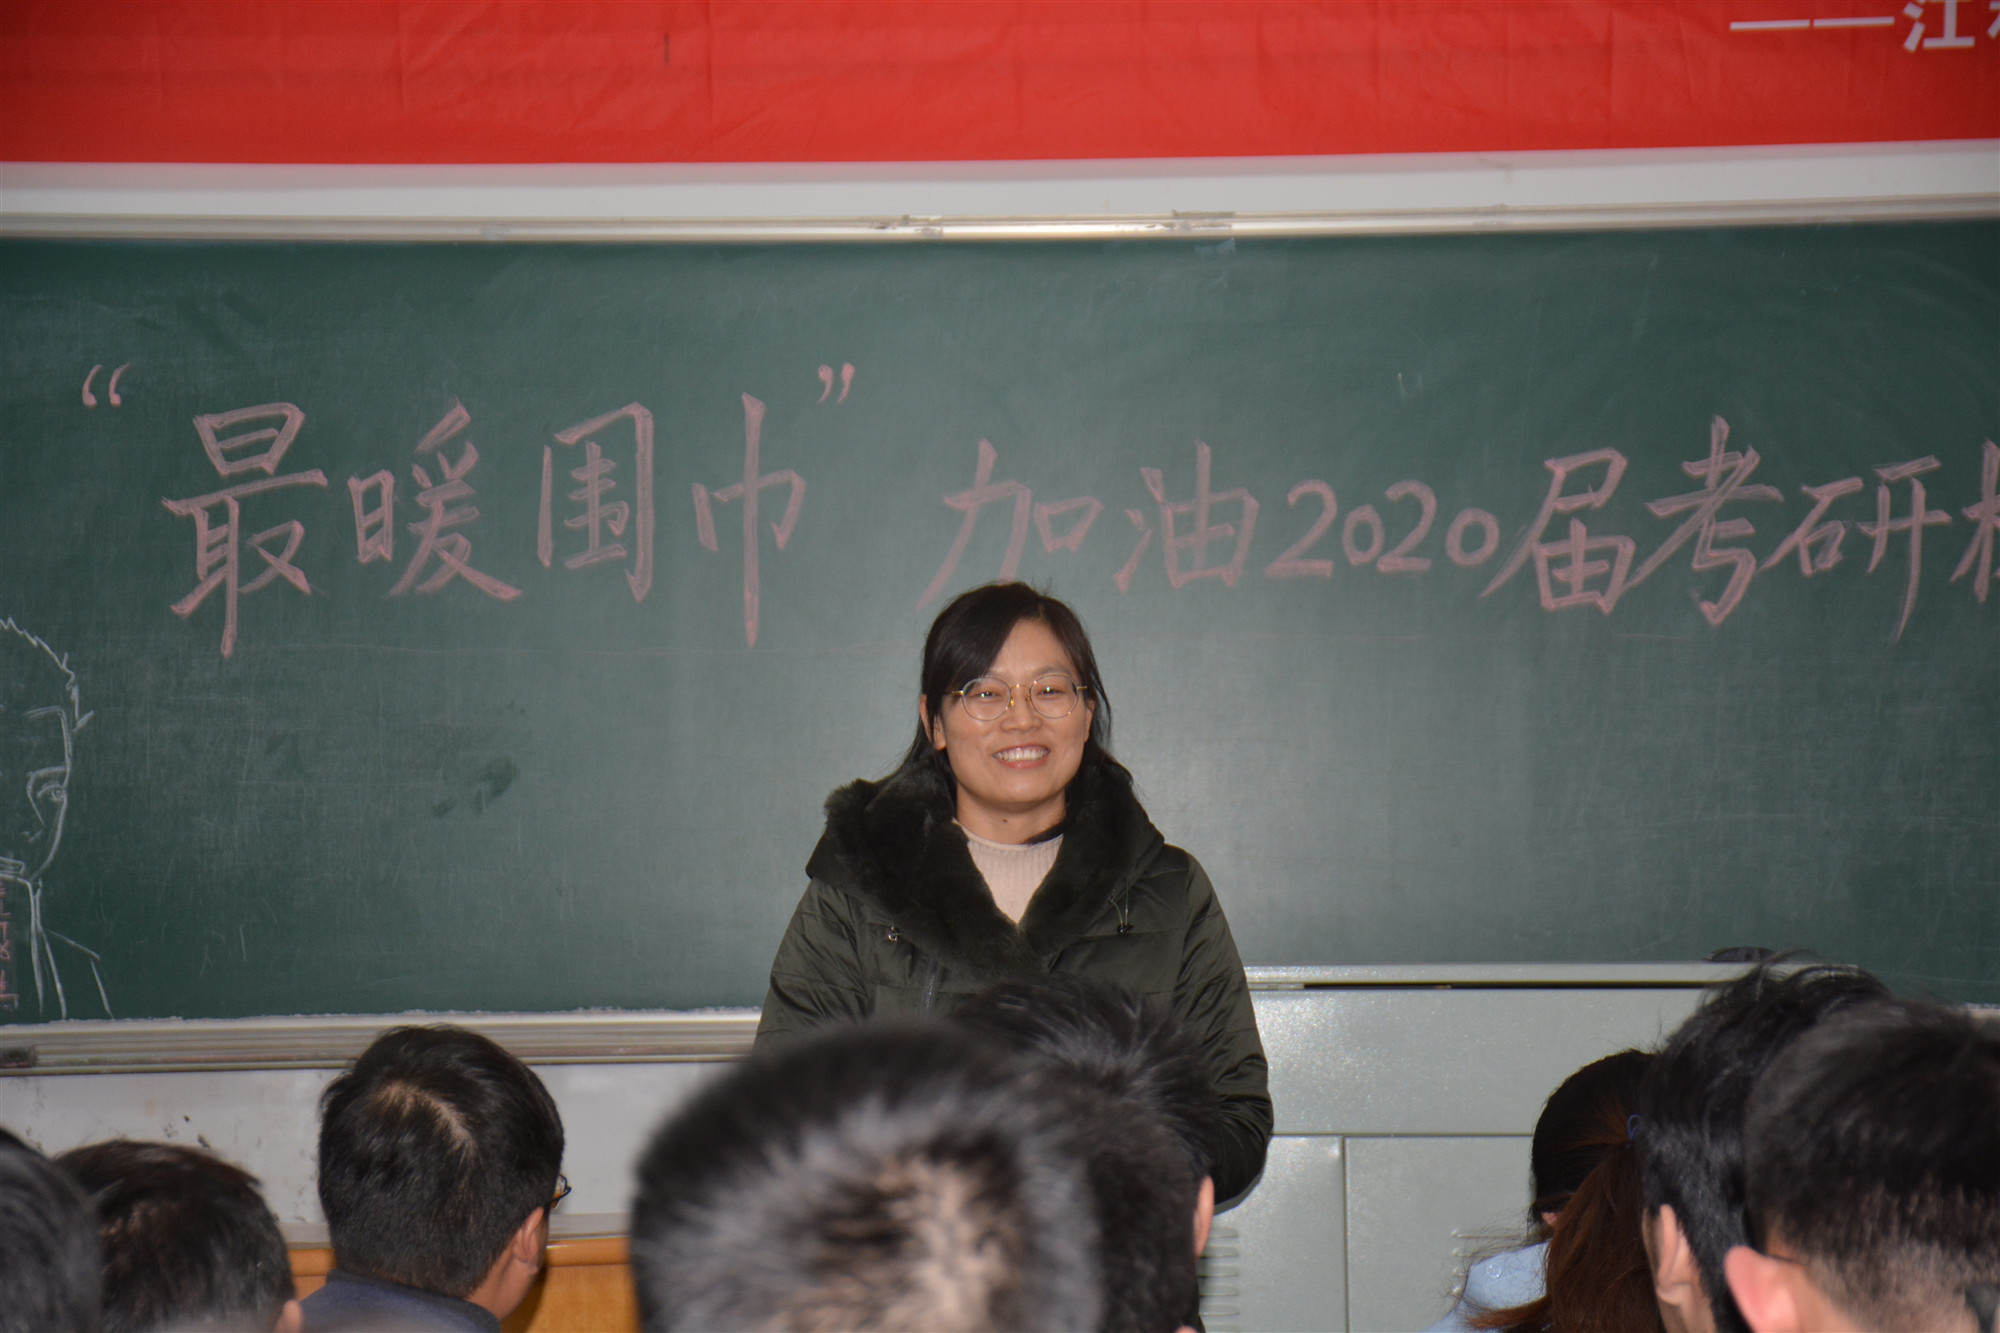 ——江
“最暖围巾”加油2020届考研